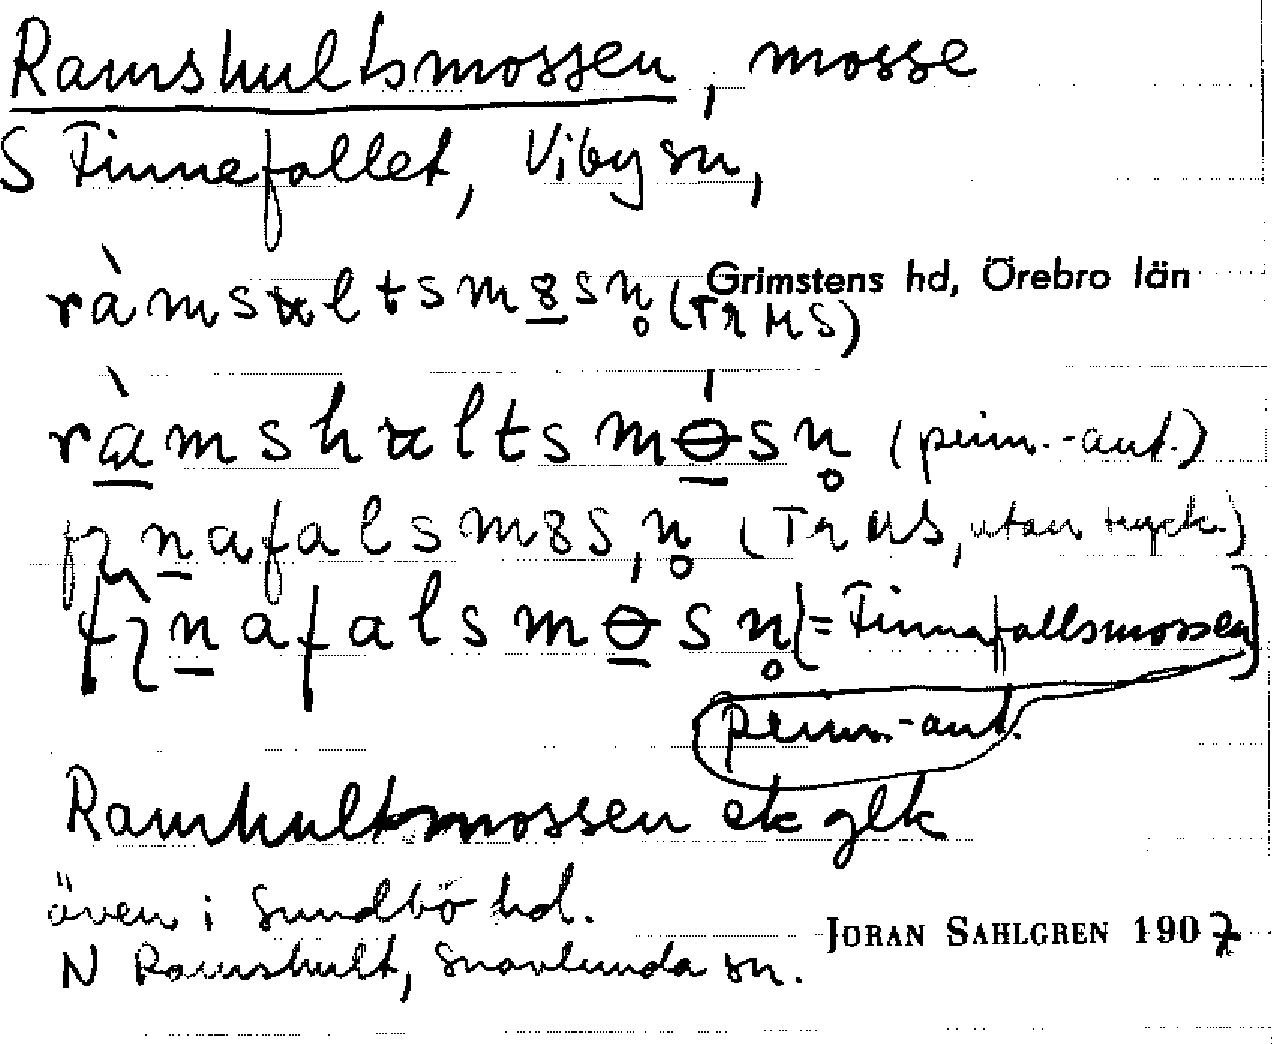 Ramshultsmossen, mosse
S Finnafallet, Viby sn,
Grimstens hd, Örebro län
ràmsʉltsm8sn̥ (Tr MS)
ràmshʉltsmɵ́sn̥ (prim.-ant.)
nafalsm8s,n̥ (Tr MS, utan tryck.)
nafalsmɵsn̥ (= Finnafallsmossen)
prim.-ant.
Ramshultsmossen ek glk
även i Sundbo hd.
N Ramshult, Snavlunda sn.
JORAN SAHLGREN 1907